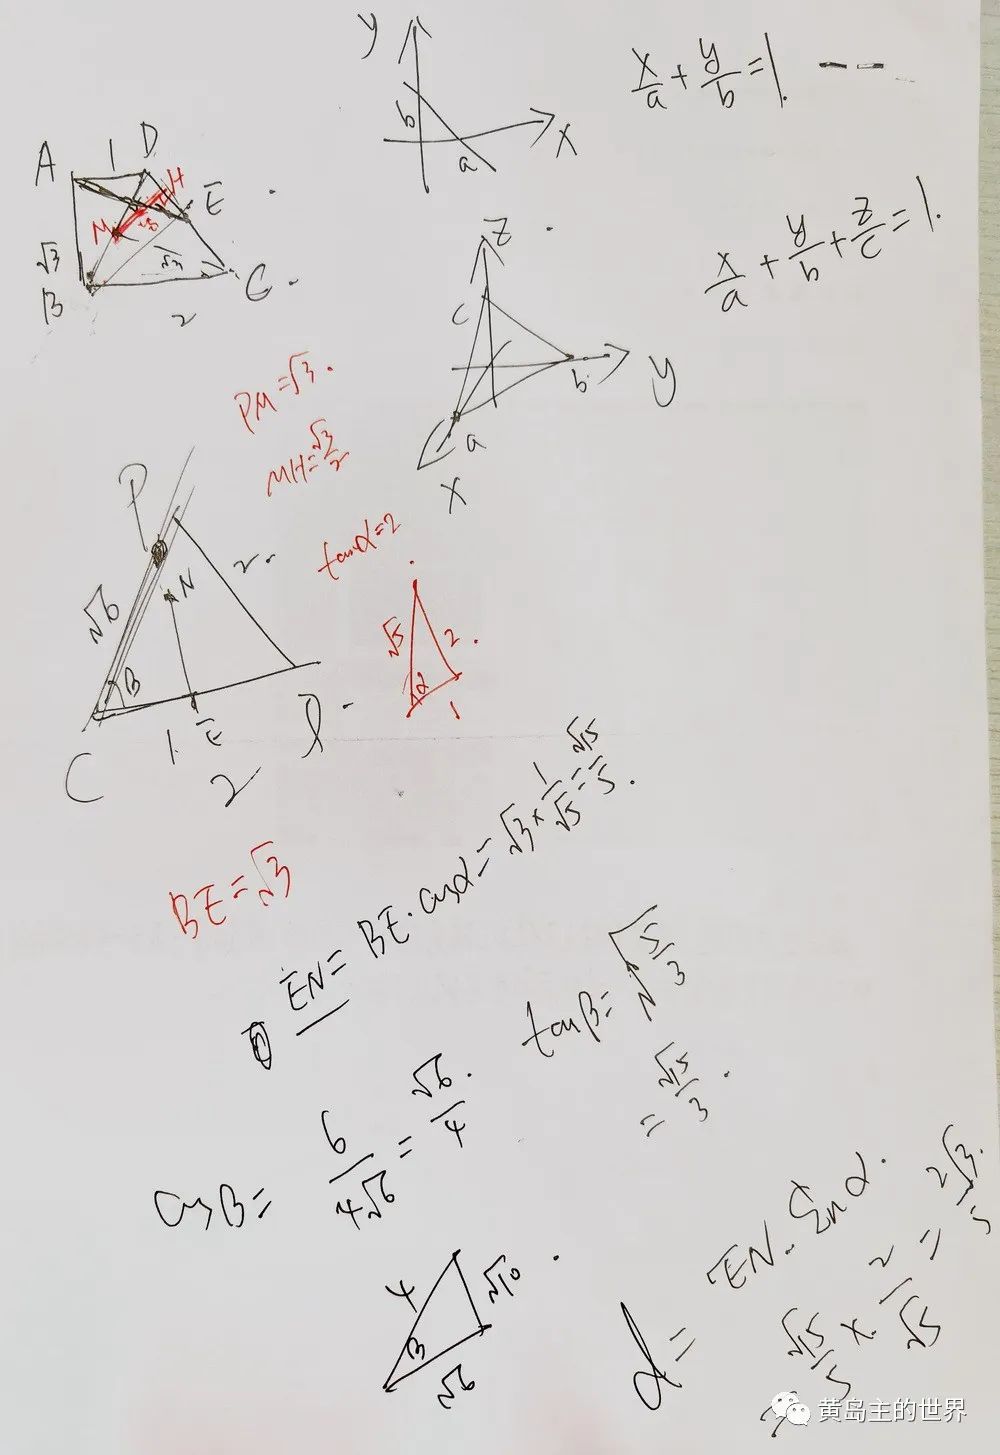 y
b
a
x
x/a + y/b = 1.
A 1 D H
M E
√3
√3
B 2 C
z
c
b
y
a
x
x/a + y/b + z/c = 1.
PM = √3.
MH = √3/2
tanα = 2
P
√6
N
2
B
C 1 E
2
√5
2
α
1
BE = √3
EN = BE · cosα = √3 × 1/√5 = √15/5.
tanβ = √(5/3)
= √15/3.
cosβ = 6/(4√6) = √6/4.
4
√10
β
√6
d = EN · sinα.
= √15/5 × 2/√5 = 2√3/5.
黄岛主的世界